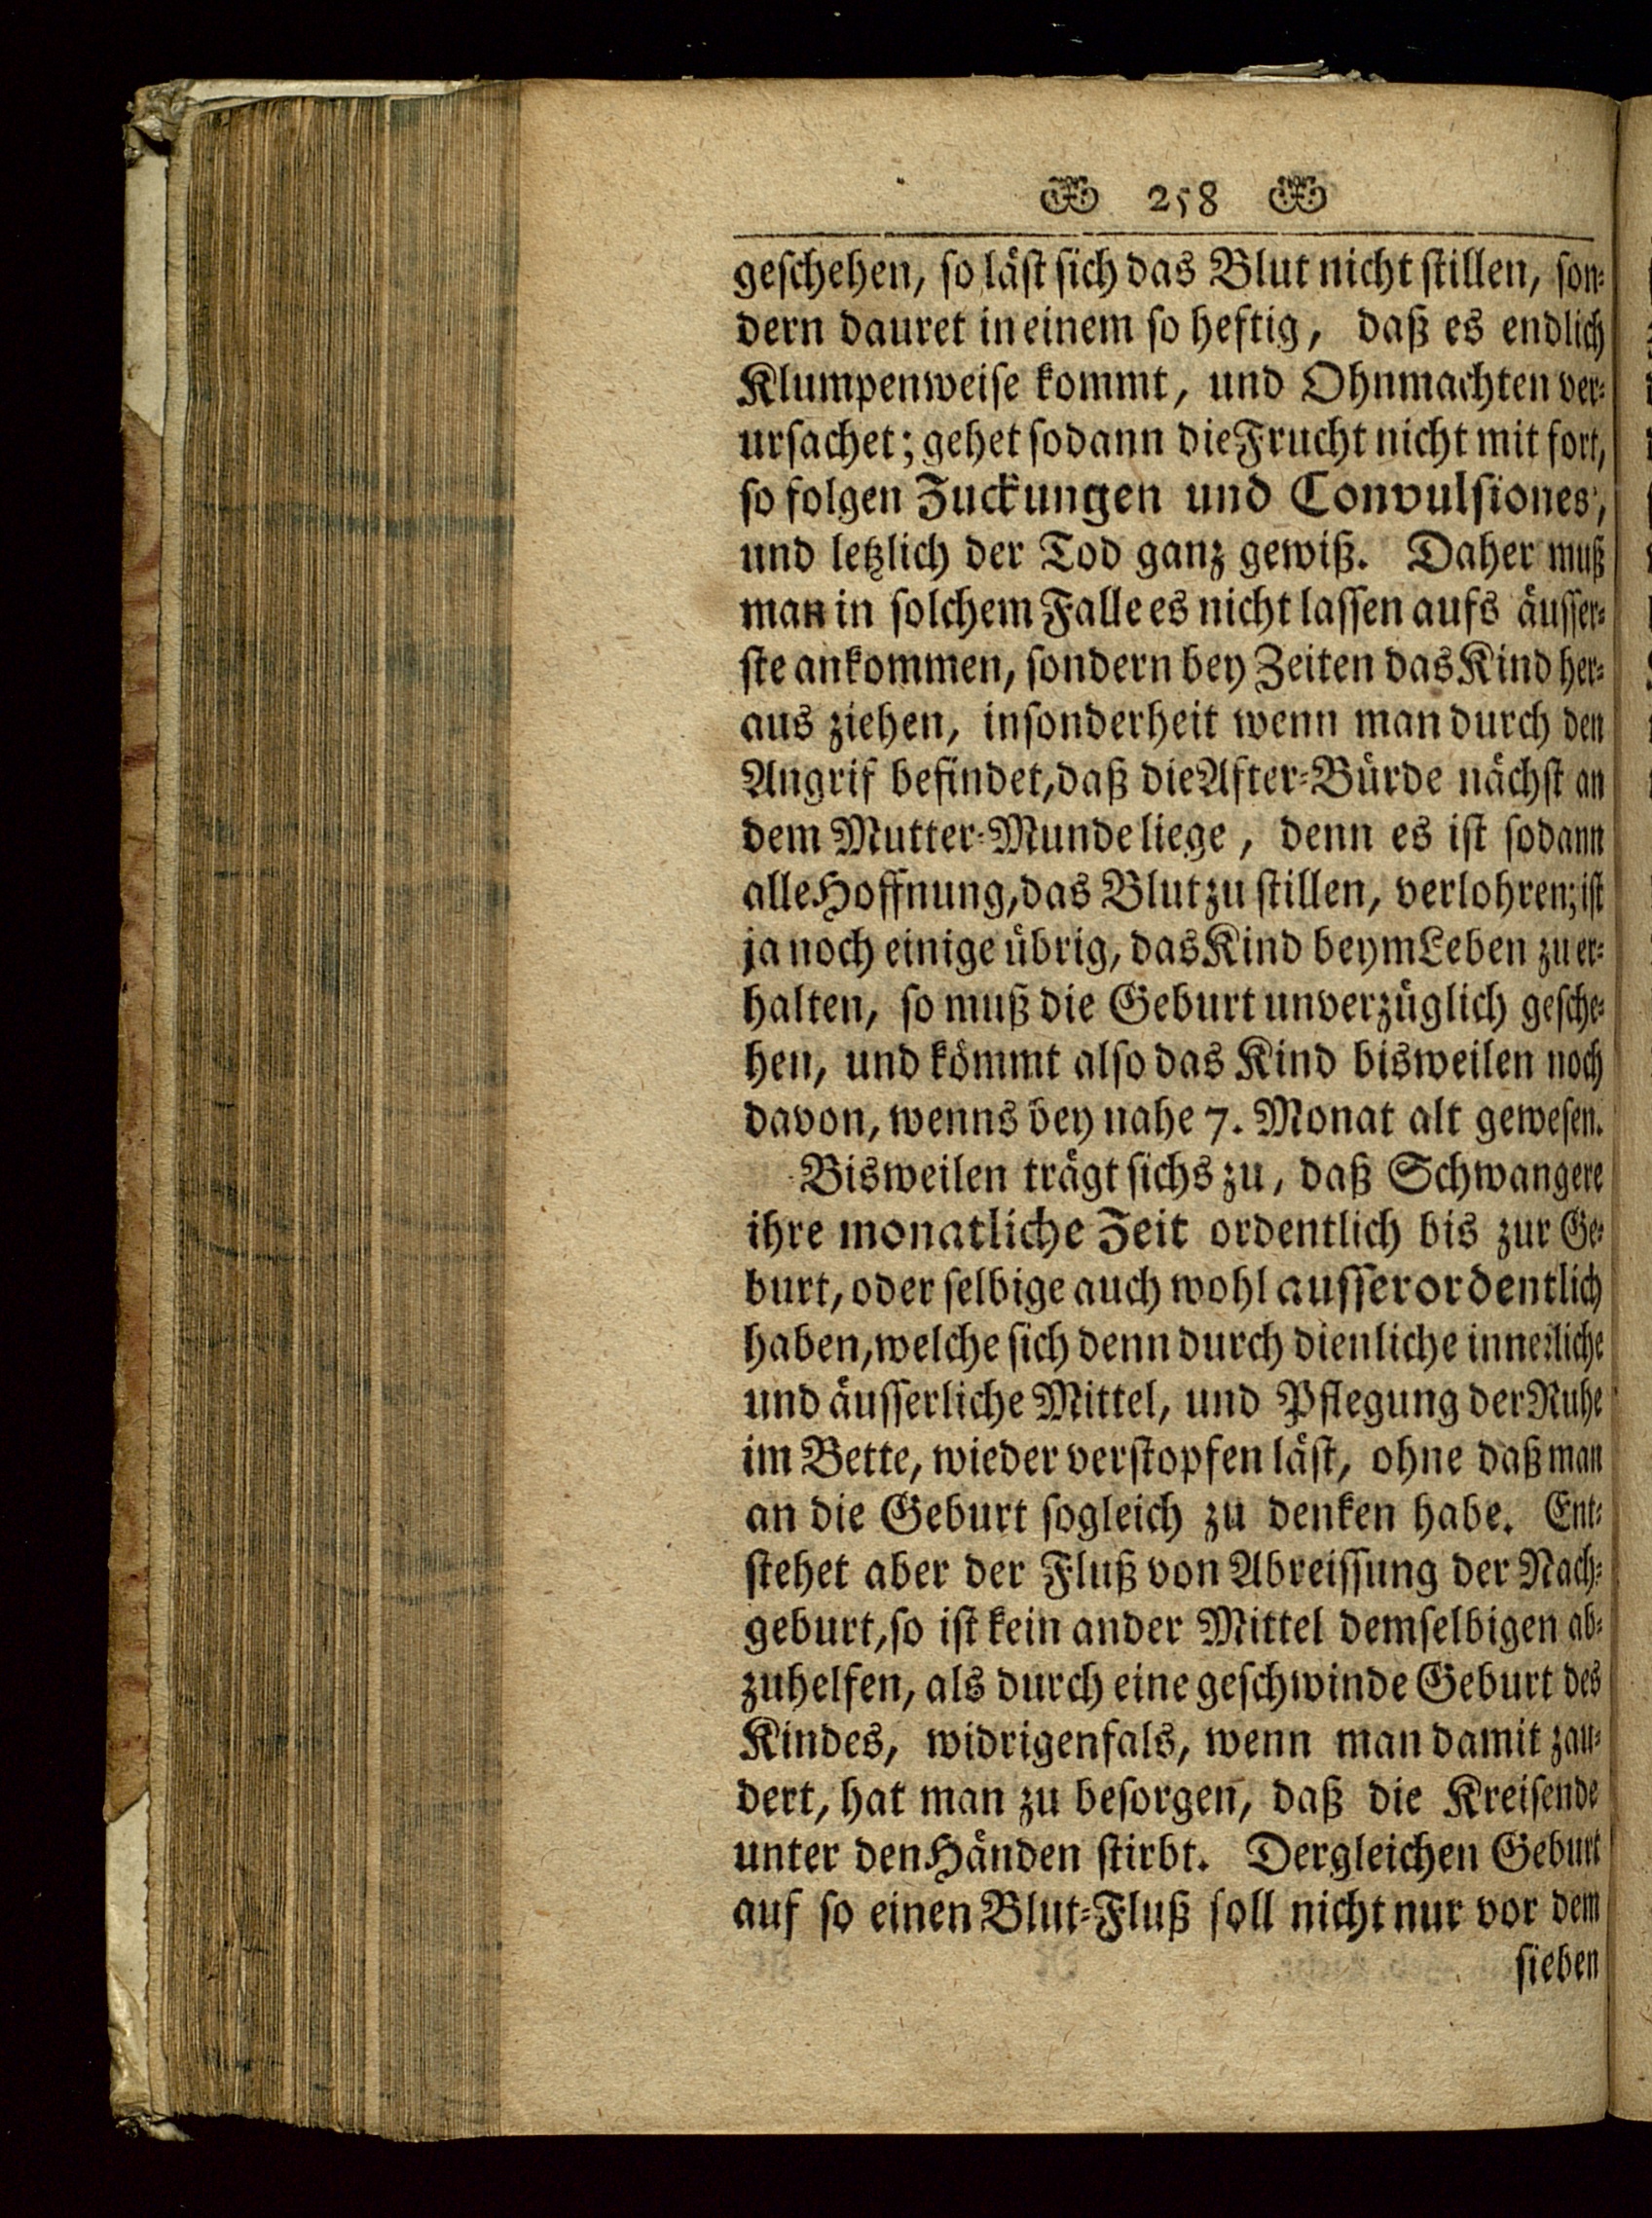 258
geschehen, so läst sich das Blut nicht stillen, son-
dern dauret in einem so heftig, daß es endlich
Klumpenweise kommt, und Ohnmachten ver-
ursachet; gehet sodann die Frucht nicht mit fort,
so folgen Zuckungen und Convulsiones,
und letzlich der Tod ganz gewiß. Daher muß
man in solchem Falle es nicht lassen aufs äusser-
ste ankommen, sondern bey Zeiten das Kind her-
aus ziehen, insonderheit wenn man durch den
Angrif befindet, daß die After-Bürde nächst an
dem Mutter-Munde liege, denn es ist sodann
alle Hoffnung, das Blut zu stillen, verlohren; ist
ja noch einige übrig, das Kind beym Leben zu er-
halten, so muß die Geburt unverzüglich gesche-
hen, und kömmt also das Kind bisweilen noch
davon, wenns bey nahe 7. Monat alt gewesen.
Bisweilen trägt sichs zu, daß Schwangere
ihre monatliche Zeit ordentlich bis zur Ge-
burt, oder selbige auch wohl ausserordentlich
haben, welche sich denn durch dienliche innerliche
und äusserliche Mittel, und Pflegung der Ruhe
im Bette, wieder verstopfen läst, ohne daß man
an die Geburt sogleich zu denken habe. Ent-
stehet aber der Fluß von Abreissung der Nach-
geburt, so ist kein ander Mittel demselbigen ab-
zuhelfen, als durch eine geschwinde Geburt des
Kindes, widrigenfals, wenn man damit zau-
dert, hat man zu besorgen, daß die Kreisende
unter den Händen stirbt. Dergleichen Geburt
auf so einen Blut-Fluß soll nicht nur vor dem
sieben